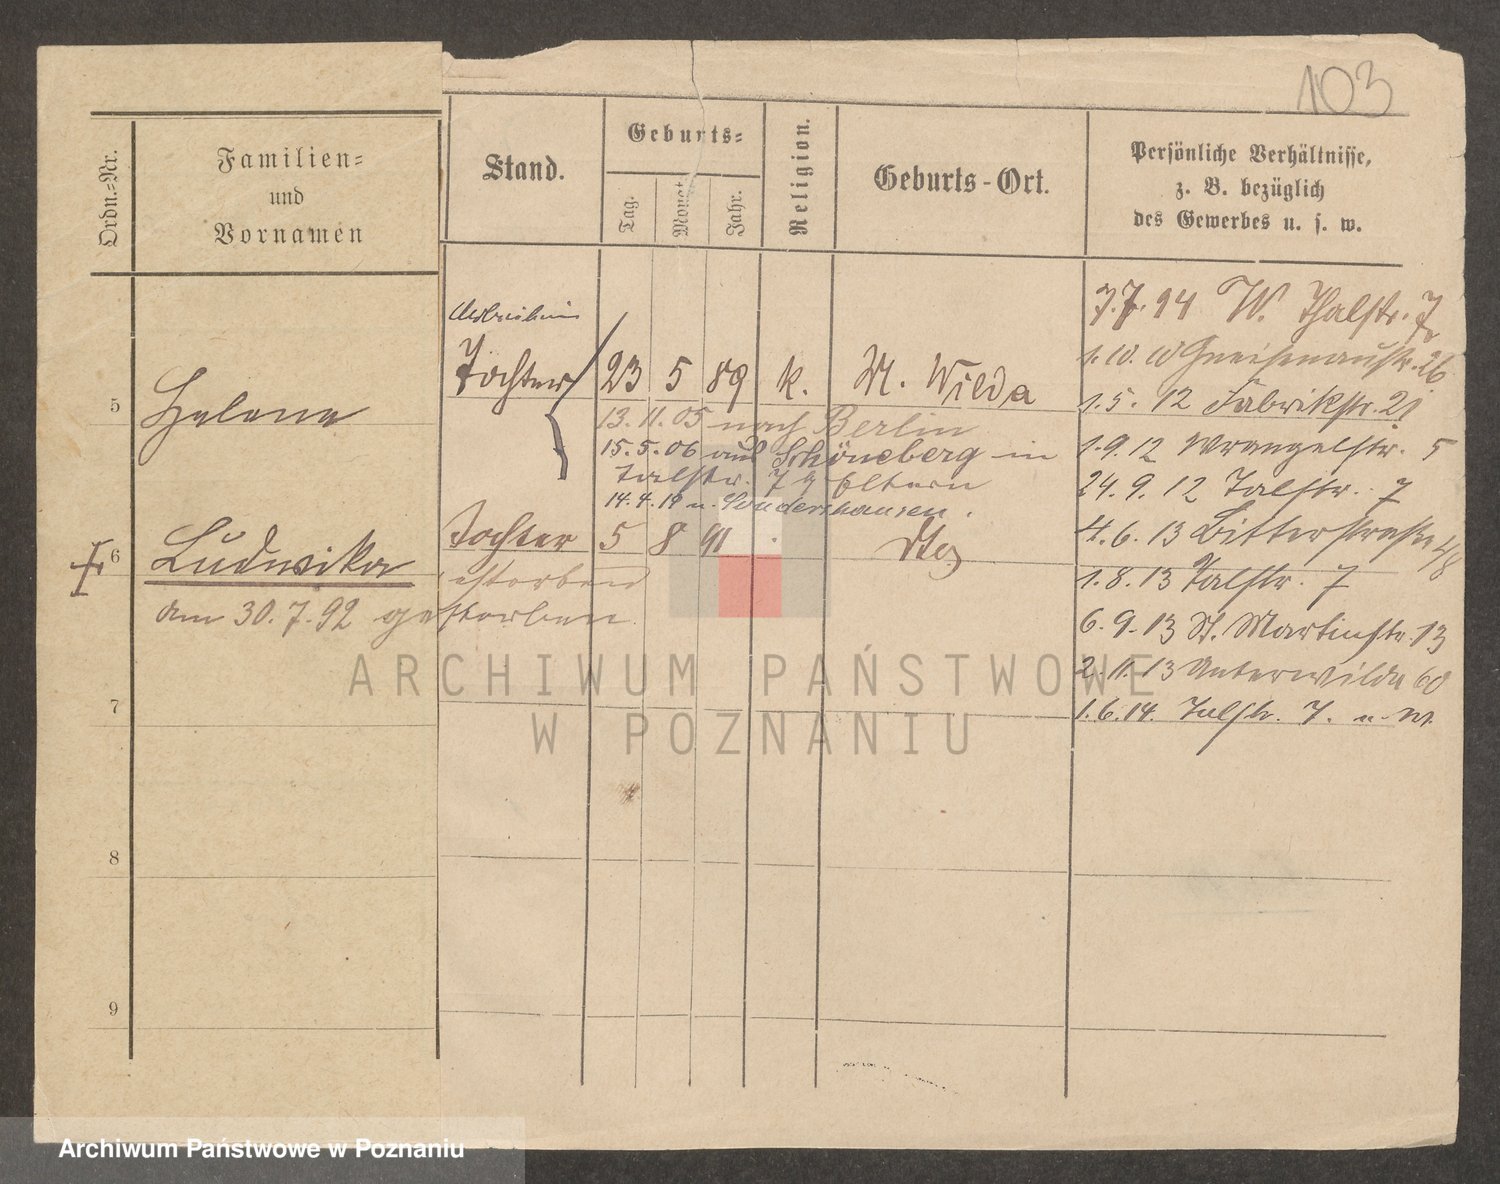 103
Ordn.-Nr.
Familien-
und
Vornamen
Stand.
Geburts-
Tag.
Monat
Jahr.
Religion.
Geburts-Ort.
Persönliche Verhältnisse,
z. B. bezüglich
des Gewerbes u. s. w.
5 Helene Tochter 23 5 89 k. W. Wilda
13.11.05 nach Berlin
15.5.06 aus Schöneberg in
Talstr. 7 b Eltern
14.4.19 n. Sondershausen.
6 Ludwika Tochter 5 8 91 dto
estorben
am 30.7.92 gestorben.
7
8
9
7.7.94 W. Thalstr. 7
1.10.10 Gneisenaustr. 26
1.5.12 Fabrikstr. 21
1.9.12 Wrangelstr. 5
24.9.12 Talstr. 7
4.6.13 Bitterstraße
1.8.13 Talstr. 7
6.9.13 St. Martinstr. 13
2.11.13 Unterwilda 60
1.6.14. Talstr. 7. u. W.
ARCHIWUM PAŃSTWOWE
W POZNANIU
Archiwum Państwowe w Poznaniu